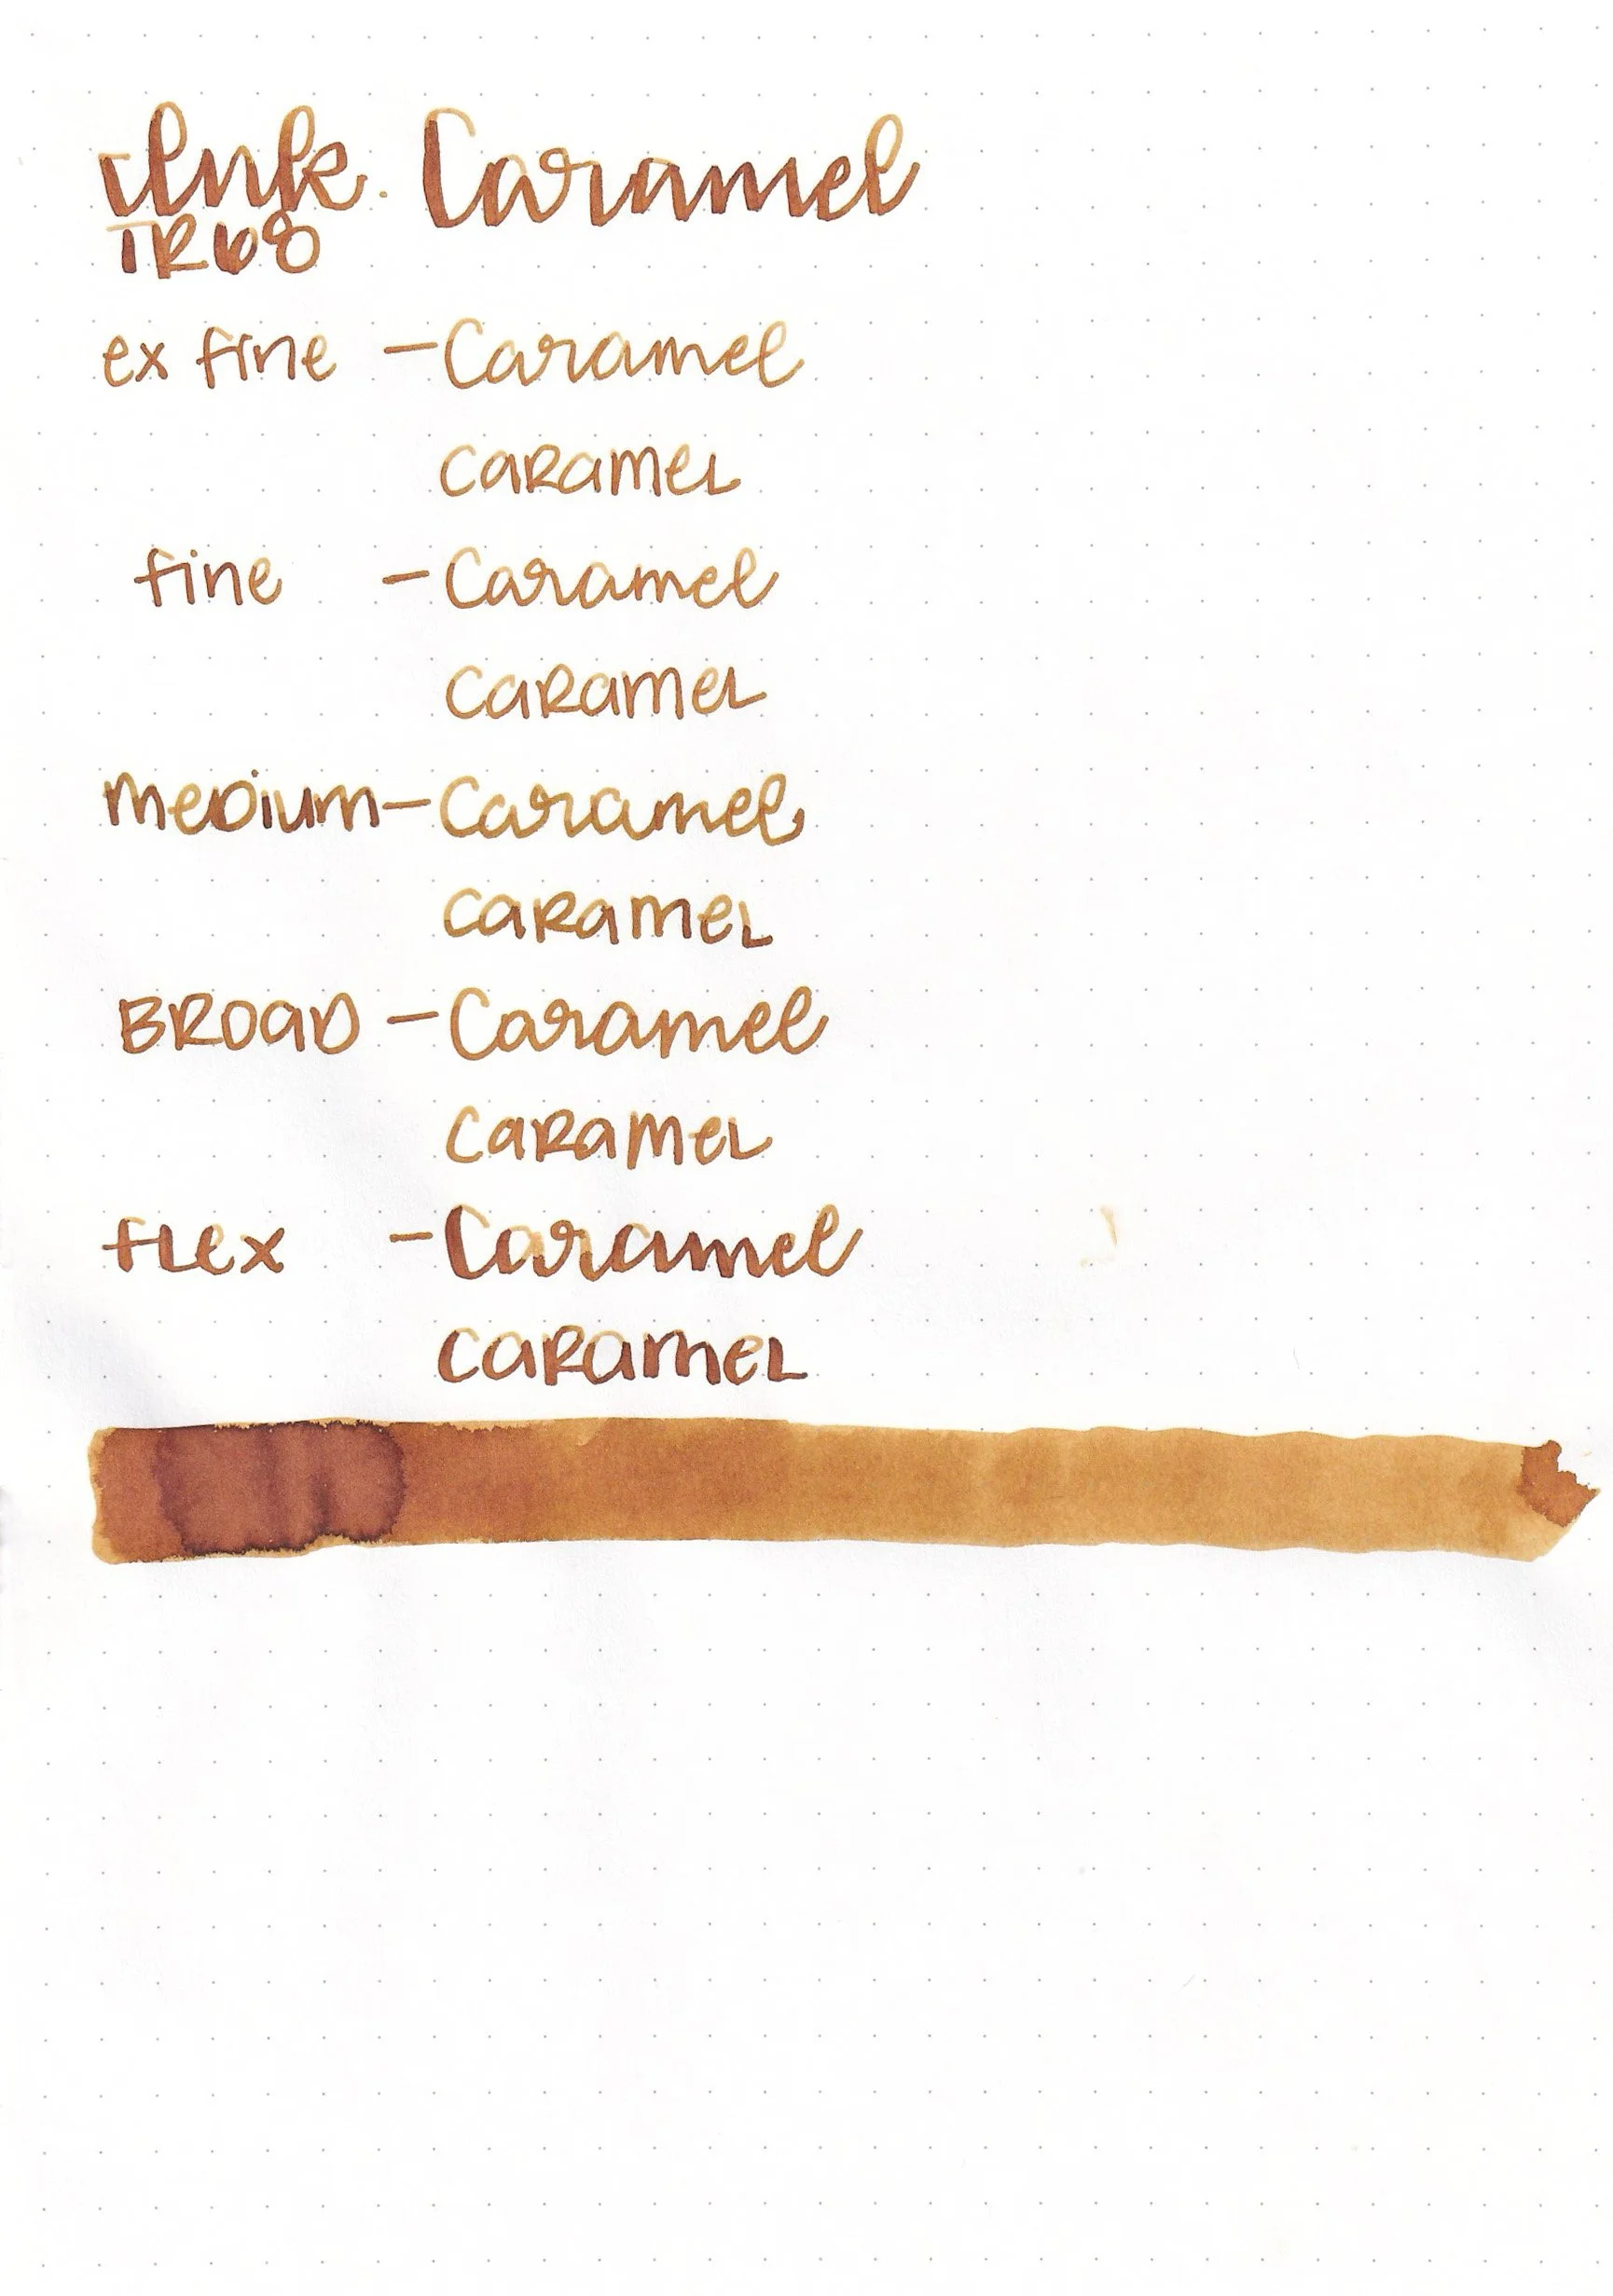 Ink. Caramel
TR68
ex fine - Caramel
CARAMEL
fine - Caramel
CARAMEL
MEDIUM - Caramel
CARAMEL
BROAD - Caramel
CARAMEL
FLEX - Caramel
CARAMEL